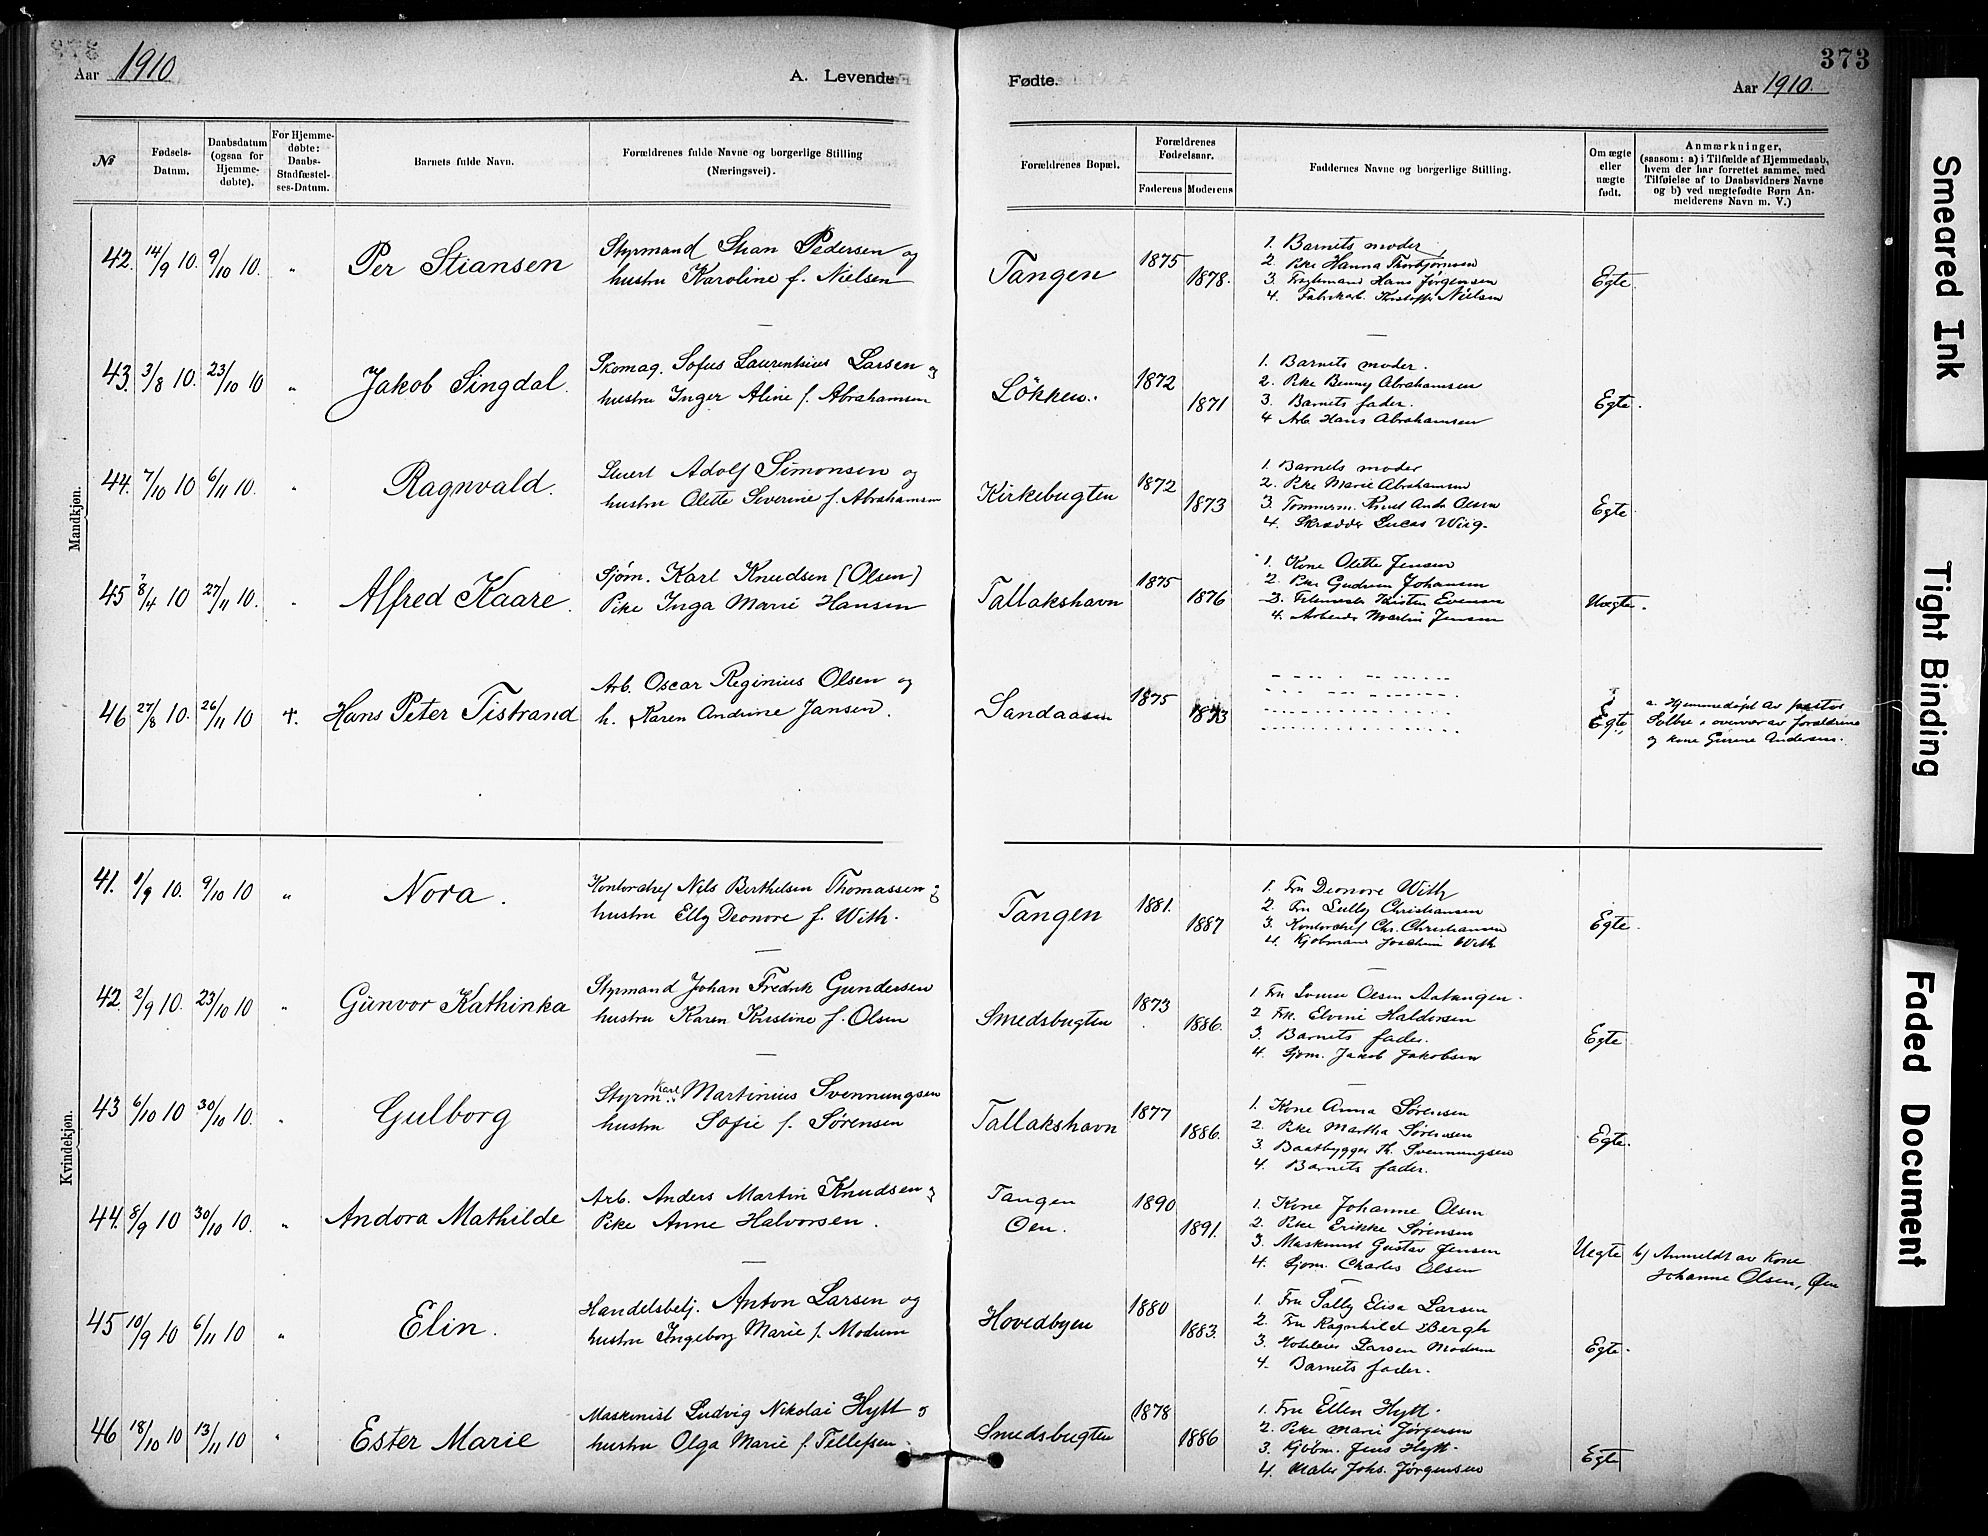 Aar 1910
A. Levende
Fødte.
373
Aar 1910.
№
Fødsels-Datum.
Daabsdatum (ogsaa for Hjemme-døbte).
For Hjemme-døbte: Daabs-Stadfæstel-ses-Datum.
Barnets fulde Navn.
Forældrenes fulde Navne og borgerlige Stilling (Næringsvei).
Forældrenes Bopæl.
Forældrenes Fødselsaar.
Faderens Moderens
Faddernes Navne og borgerlige Stilling.
Om ægte eller nægte født.
Anmærkninger,
(saasom: a) i Tilfælde af Hjemmedaab,
hvem der har forrettet samme, med
Tilføielse af to Daabsvidners Navne
og b) ved nægtefødte Børn An-
melderens Navn m. V.)
Mandkjøn.
42. 14/9 10. 9/10 10. " Per Stiansen
Styrmand Stian Pedersen og
hustru Karoline f. Nielsen
Tangen 1875 1878.
1. Barnets moder
2. Pike Hanna Thorbjørnsen
3. Hans Jørgensen
4. Fabrikarb. Kristoffer Nielsen
Egte
43. 3/8 10. 23/10 10 " Jakob Singdal.
Skomag. Sofus Laurentius Larsen og
hustru Inger Aline f. Abrahamsen
Løkken. 1872 1871
1. Barnets moder.
2. Pike Benny Abrahamsen
3. Barnets fader.
4 Arb. Hans Abrahamsen
Egte.
44. 7/10 10 6/11 10. " Ragnvald.
Adolf Simonsen og
hustru Olette Severine f. Abrahamsen
Kirkebugten 1872 1873
1. Barnets moder
2. Pike Marie Abrahamsen
3. Tømmerm. Knut Andr. Olsen
4. Skrædder Lucas Wiig.
Egte
45 8/4 10 27/11 10. " Alfred Kaare.
Sjøm. Karl Knudsen (Olsen)
Pike Inga Marie Hansen
Tallakshavn 1875 1876
1. Kone Olette Jensen
2. Pike Gudrun Johansen
3. Kristen Evensen
4. Arbeider Martin Jensen
Uægte.
46 27/8 10. 26/11 10 +. Hans Peter Tistrand
Arb. Oscar Reginius Olsen og
h. Karen Andrine Jansen.
Sandaasen 1875 1873
Egte
a. Hjemmedøpt av pastor
Solbu i overvær av forældrene
og kone Gurine Andersen.
Kvindekjøn.
41. 1/9 10. 9/10 10 " Nora.
Kontorchef Nils Berthelsen Thomassen og
hustru Elly Deonore f. With.
Tangen 1881. 1887
1. Fru Deonore With
2. Fru Lully Christiansen
3. Kontorchef Chr. Christiansen
4. Kjøbmand Joachim With
Egte.
42. 2/9 10. 23/10 10 " Gunvor Kathinka
Styrmand Johan Fredrik Gundersen
hustru Karen Kristine f. Olsen
Smedsbugten 1873 1886.
1 Fru Olsen
2 Frk. Elvine Haldorsen
3. Barnets fader.
4. Sjøm. Jacob Jakobsen
Egte.
43 6/10 10 30/10 10. " Gulborg
Styrm. Karl Martinius Svennungsen
hustru Sofie f. Sørensen
Tallakshavn 1877 1886.
1. Kone Anna Sørensen
2. Pike Martha Sørensen
3. Baatbygger Th. Svennungsen
4. Barnets fader.
Egte.
44. 8/9 10 30/10 10. " Andora Mathilde
Arb. Anders Martin Knudsen og
Pike Anne Halvorsen.
Tangen
Øen. 1890 1891.
1. Kone Johanne Olsen
2. Pike Erikke Sørensen
3. Maskinist Gustav Jensen
4. Sjøm. Charles Olsen
Uegte
b) Anmeldt av Kone
Johanne Olsen, Øen
45 10/9 10 6/11 10 " Elin.
Handelsbetj. Anton Larsen og
hustru Ingeborg Marie f. Modum
Hovedbyen 1880 1883.
1. Fru Sally Elisa Larsen
2. Fru Ragnhild Bergh
3. Larsen Modum
4. Barnets fader.
Egte.
46 18/10 10 13/11 10 " Ester Marie
Maskinist Ludvig Nikolai Hytt og
hustru Olga Marie f. Tellefsen.
Smedsbugten 1878 1886
1. Fru Ellen Hytt.
2. Pike Marie Jørgensen
3. Kjøbm. Jens Hytt.
4. Maler Johs. Jørgensen
Egte
Smeared Ink
Tight Binding
Faded Document